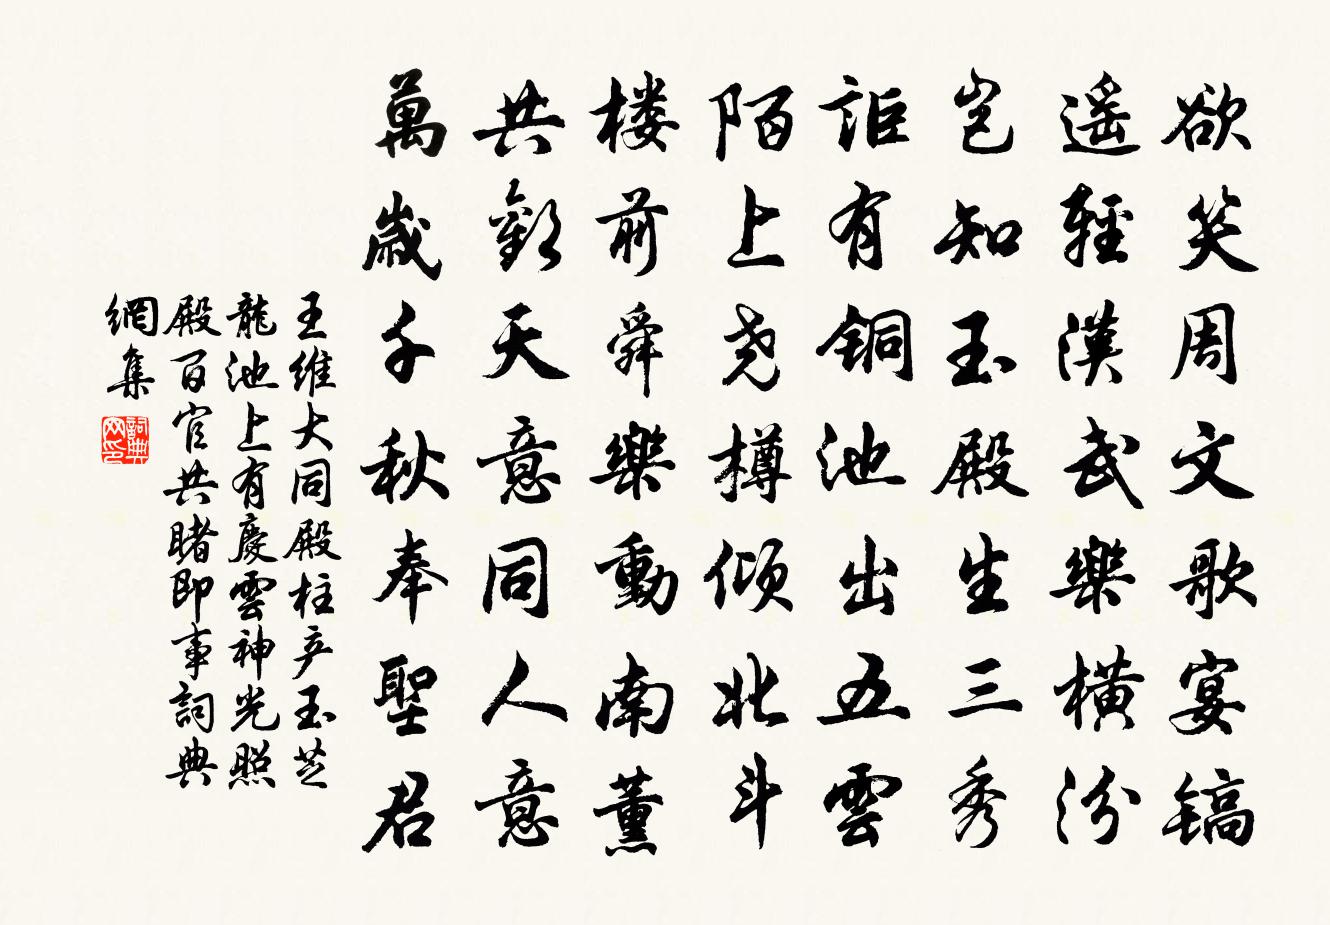 欲笑周文歌宴镐
遥輕漢武樂横汾
岂知玉殿生三秀
詎有铜池出五雲
陌上尧樽倾北斗
楼前舜樂動南薰
共歡天意同人意
萬歲千秋奉聖君
王維大同殿柱产玉芝
龍池上有慶雲神光照
殿百官共睹即事詞典
網集
詞典
网印